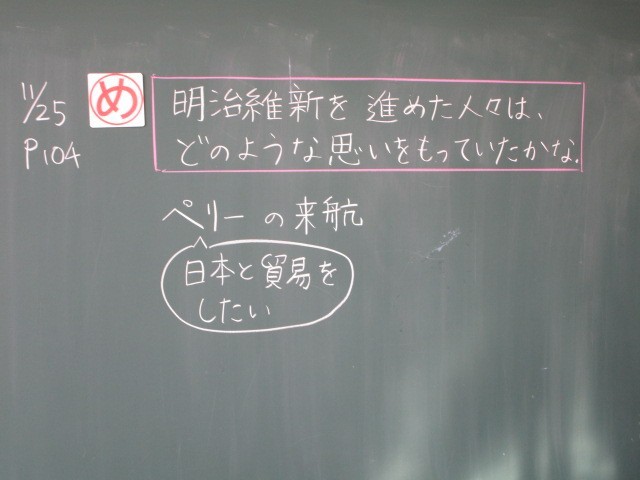 11/25
P104
め
明治維新を進めた人々は、
どのような思いをもっていたかな.
ペリーの来航
日本と貿易を
したい